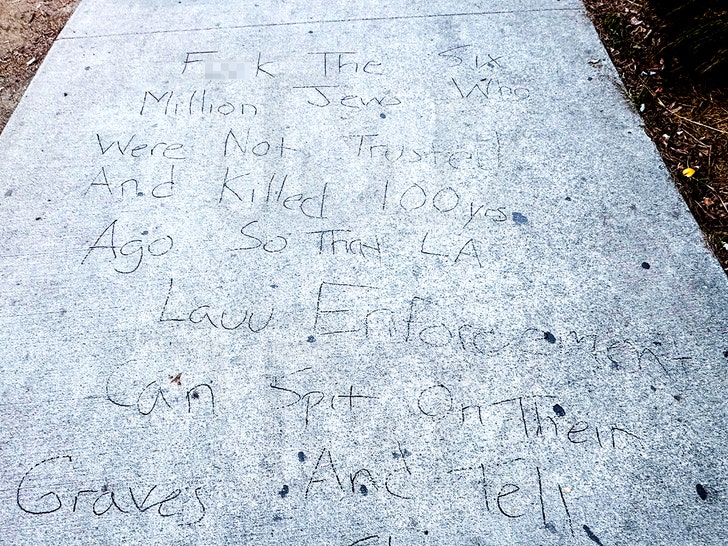 F k The Six
Million Jews Who
Were Not Trusted
And Killed 100 yrs
Ago So That LA
Law Enforcement
Can Spit On Their
Graves And Tell